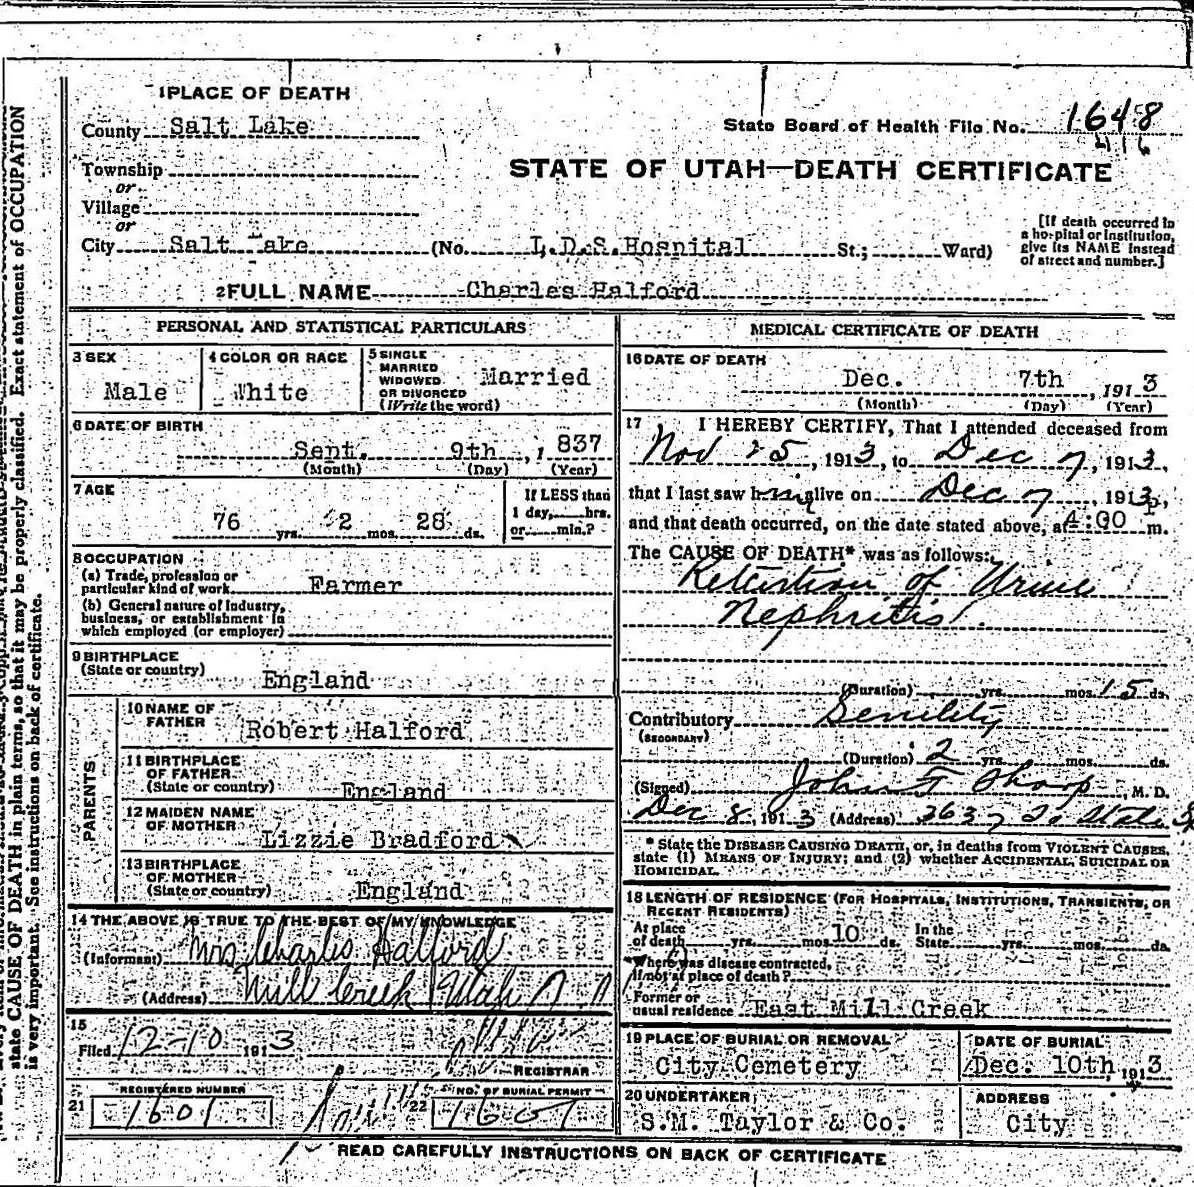 1 PLACE OF DEATH
County Salt Lake
State Board of Health File No. 1648
416
Township
or
Village
or
City Salt Lake (No. L.D.S. Hospital St.; Ward)
STATE OF UTAH—DEATH CERTIFICATE
[If death occurred in
a hospital or institution,
give its NAME instead
of street and number.]
2 FULL NAME Charles Halford
PERSONAL AND STATISTICAL PARTICULARS
3 SEX
Male
4 COLOR OR RACE
White
5 SINGLE
MARRIED
WIDOWED
OR DIVORCED
(Write the word)
Married
6 DATE OF BIRTH
Sept. 9th, 1837
(Month) (Day) (Year)
7 AGE
76 yrs. 2 mos. 28 ds.
If LESS than
1 day, hrs.
or min.?
8 OCCUPATION
(a) Trade, profession or
particular kind of work Farmer
(b) General nature of Industry,
business, or establishment in
which employed (or employer)
9 BIRTHPLACE
(State or country) England
PARENTS
10 NAME OF
FATHER Robert Halford
11 BIRTHPLACE
OF FATHER
(State or country) England
12 MAIDEN NAME
OF MOTHER Lizzie Bradford
13 BIRTHPLACE
OF MOTHER
(State or country) England
14 THE ABOVE IS TRUE TO THE BEST OF MY KNOWLEDGE
(Informant) Mrs Charles Halford
(Address) Mill Creek Utah
15
Filed 12-10 1913
REGISTRAR
21 REGISTERED NUMBER
1601
22 NO. OF BURIAL PERMIT
MEDICAL CERTIFICATE OF DEATH
16 DATE OF DEATH
Dec. 7th, 1913
(Month) (Day) (Year)
17 I HEREBY CERTIFY, That I attended deceased from
Nov 25, 1913, to Dec 7, 1913,
that I last saw him alive on Dec 7, 1913,
and that death occurred, on the date stated above, at 4:00 p m.
The CAUSE OF DEATH* was as follows:
Retention of Urine
Nephritis
(Duration) yrs. mos. 15 ds.
Contributory Senility
(SECONDARY)
(Duration) 2 yrs. mos. ds.
(Signed) John F Sharp, M. D.
Dec 8, 1913 (Address) 3637 So State St
* State the DISEASE CAUSING DEATH, or, in deaths from VIOLENT CAUSES,
state (1) MEANS OF INJURY; and (2) whether ACCIDENTAL, SUICIDAL OR
HOMICIDAL.
18 LENGTH OF RESIDENCE (FOR HOSPITALS, INSTITUTIONS, TRANSIENTS, OR
RECENT RESIDENTS)
At place
of death yrs. mos. 10 ds. In the
State yrs. mos. ds.
Where was disease contracted,
if not at place of death?
Former or
usual residence East Mill Creek
19 PLACE OF BURIAL OR REMOVAL
City Cemetery
DATE OF BURIAL
Dec. 10th, 1913
20 UNDERTAKER
S.M. Taylor & Co.
ADDRESS
City
READ CAREFULLY INSTRUCTIONS ON BACK OF CERTIFICATE
state CAUSE OF DEATH in plain terms, so that it may be properly classified. Exact statement of OCCUPATION
is very important. See instructions on back of certificate.